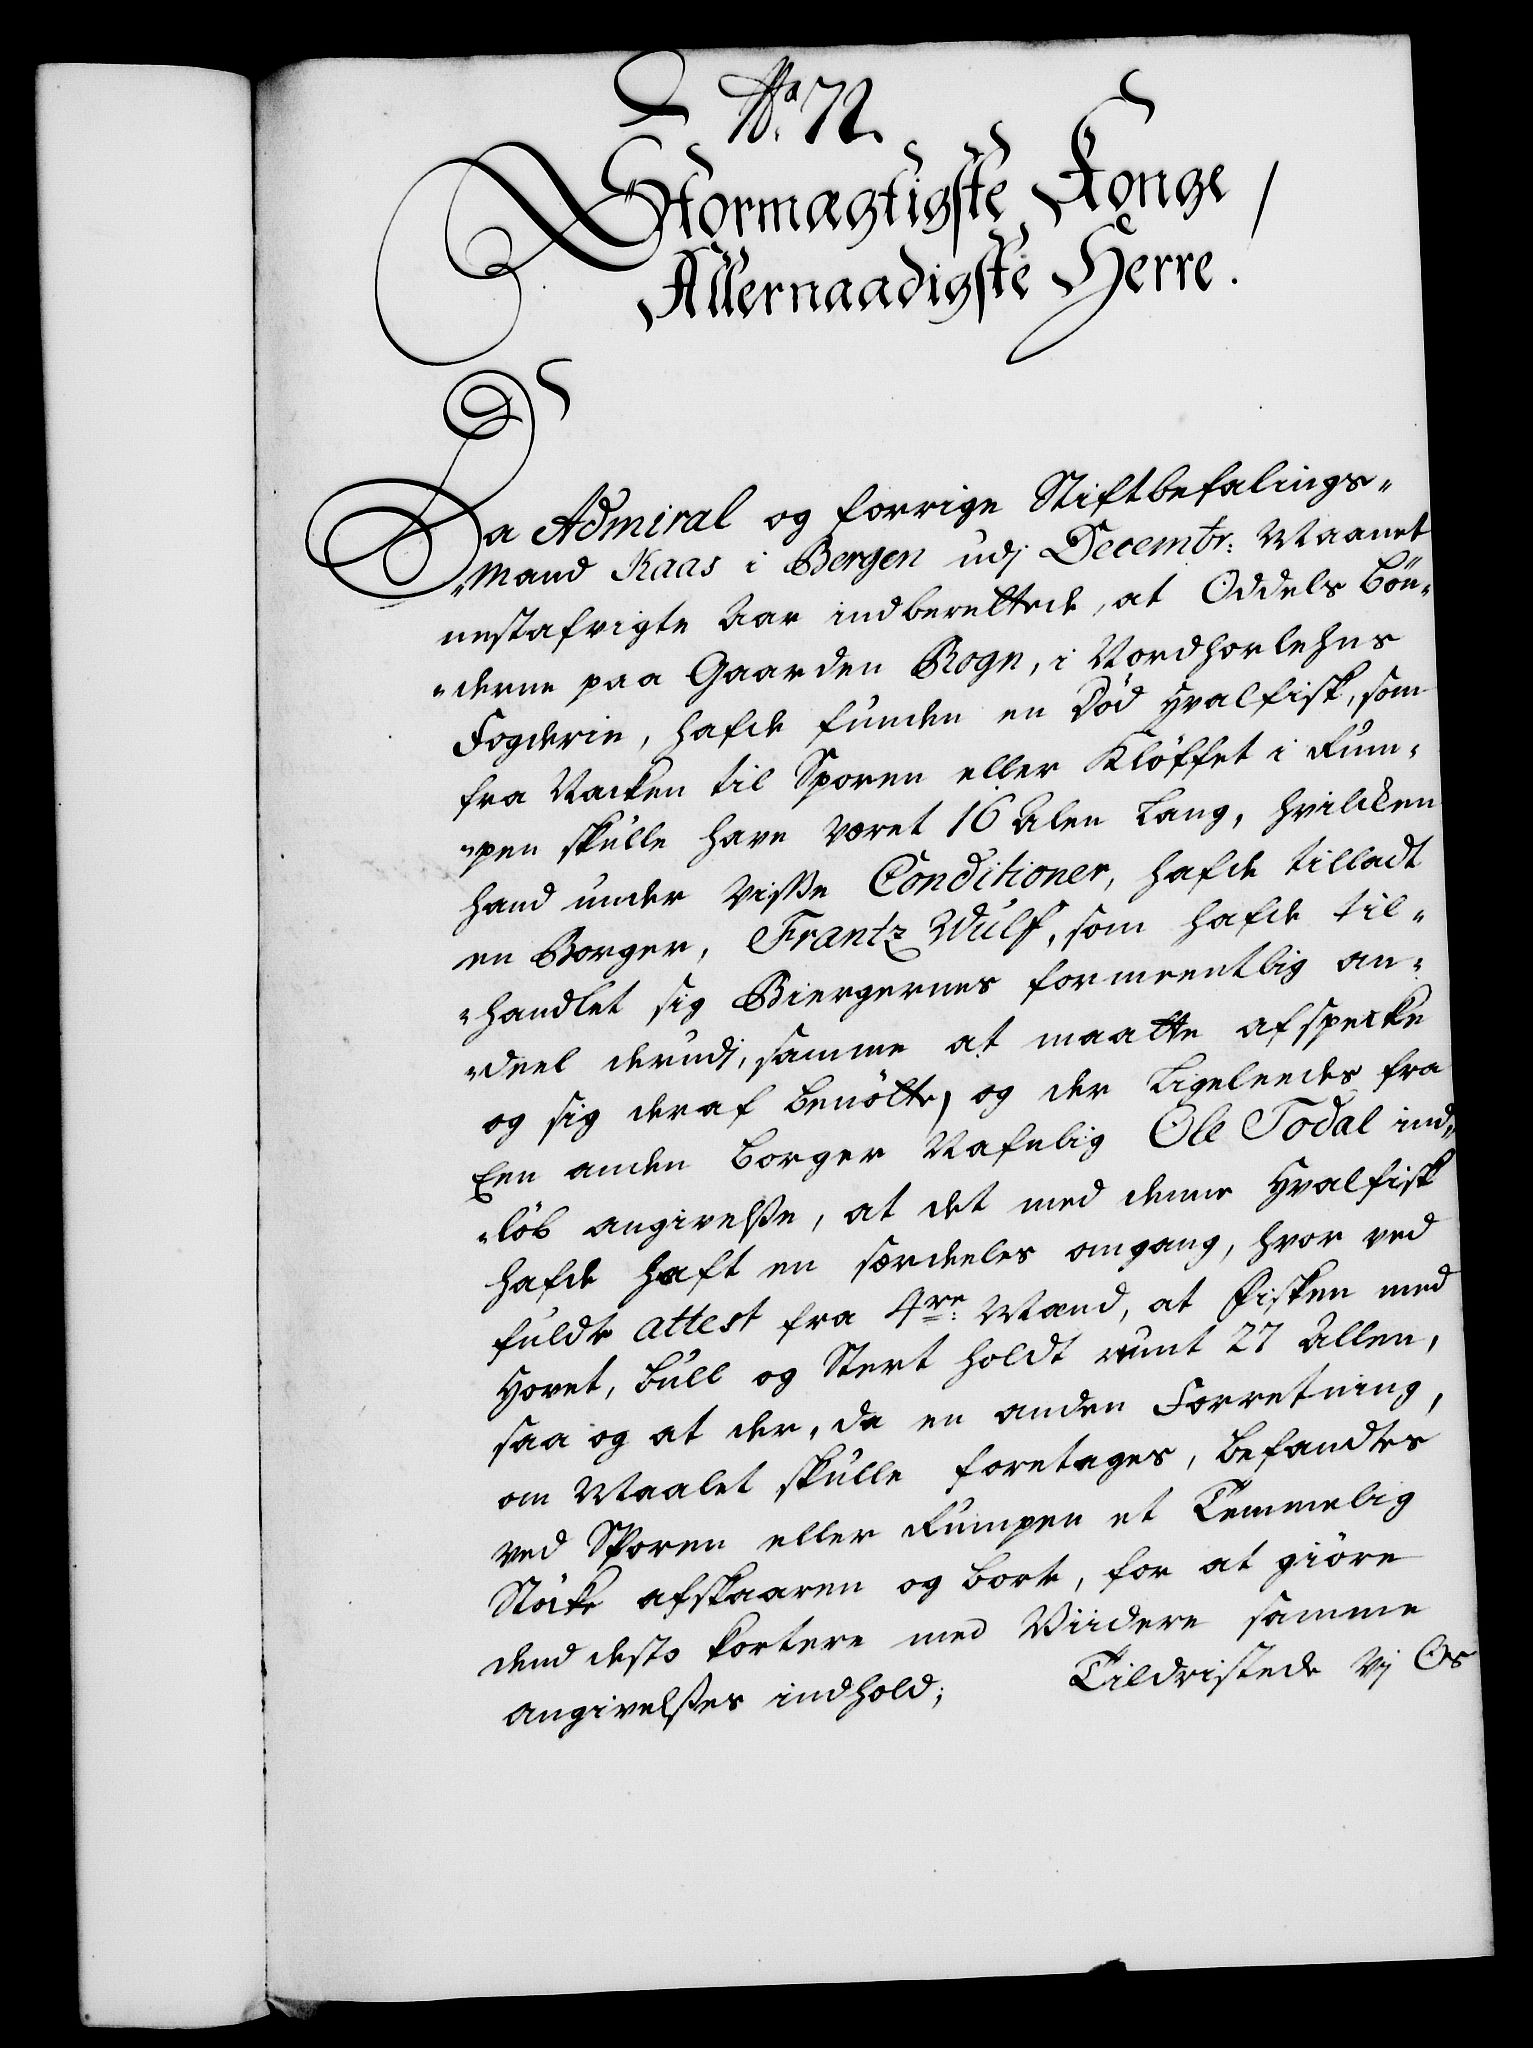 No. 72.
Stormægtigste Konge /
Allernaadigste Herre.
Da Admiral og forrige Stiftbefalings-
-Mand Kaas i Bergen udj Decembr: Maanet
nestafvigte Aar indberettede, at Oddels Bøn-
-derne paa Gaarden Rogn, i Nordhorlehns
Fogderie, hafde funden en Død Hvalfisk, som
fra Nacken til Sporen eller Kløfftet i Rum-
-pen skulle have været 16 Alen Lang, hvilcken
hand under visse Conditioner, hafde tilladt
en Borger, Frantz Wulf, som hafde til-
-handlet sig Biergernes formeentlig an-
-deel derudj, samme at maatte afspecke
og sig deraf benøtte, og der Ligeleedes fra
Een anden Borger Nafnlig Ole Todal ind-
-løb angivelse, at det med denne Hvalfisk
hafde haft en særdeeles omgang, hvor ved
fuldte attest fra 4re: Mand, at Fisken med
Hovet, Bull og Stert holdt runt 27 Allen,
saa og at der, da en anden Forretning,
om Maalet skulle foretages, befandtes
ved Sporen eller Rumpen et Temmelig
Støcke afskaaren og borte, for at giøre
dend desto kortere med Viidere samme
angivelses indhold; Tildristede Vj Os